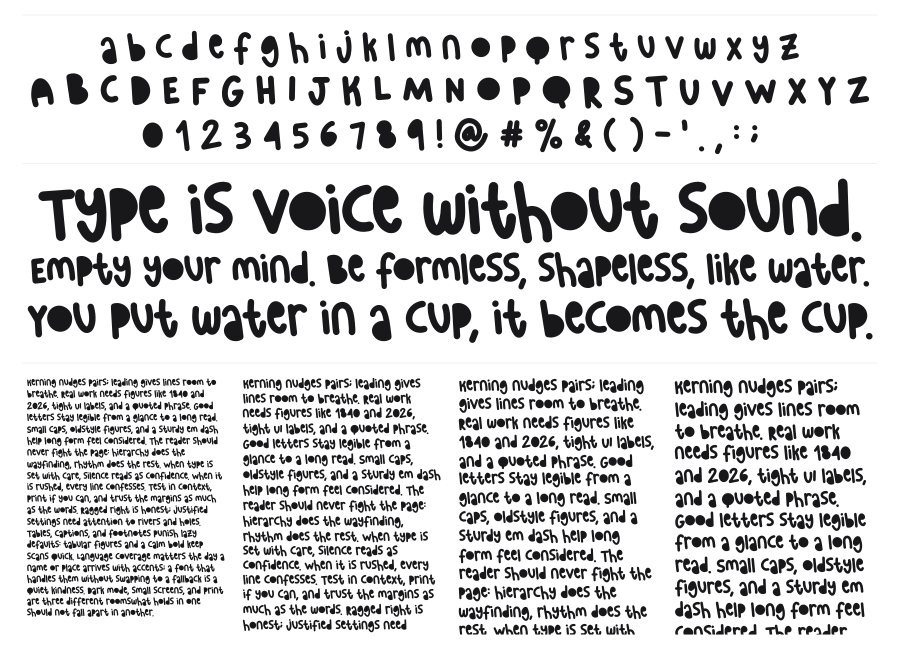 a b c d e f g h i j k l m n o p q r s t u v w x y z
A B C D E F G H I J K L M N O P Q R S T U V W X Y Z
0 1 2 3 4 5 6 7 8 9 ! @ # % & ( ) - ' . , : ;
Type is voice without sound.
Empty your mind. Be formless, shapeless, like water.
You put water in a cup, it becomes the cup.
Kerning nudges pairs; leading gives lines room to
breathe. Real work needs figures like 1840 and
2026, tight UI labels, and a quoted phrase. Good
letters stay legible from a glance to a long read.
Small caps, oldstyle figures, and a sturdy em dash
help long form feel considered. The reader should
never fight the page: hierarchy does the
wayfinding, rhythm does the rest. When type is
set with care, silence reads as confidence. When it
is rushed, every line confesses. Test in context,
print if you can, and trust the margins as much
as the words. Ragged right is honest; justified
settings need attention to rivers and holes.
Tables, captions, and footnotes punish lazy
defaults; tabular figures and a calm bold keep
scans quick. Language coverage matters the day a
name or place arrives with accents; a font that
handles them without swapping to a fallback is a
quiet kindness. Dark mode, small screens, and print
are three different rooms
what holds in one
should not fall apart in another.
Kerning nudges pairs; leading gives
lines room to breathe. Real work
needs figures like 1840 and 2026,
tight UI labels, and a quoted phrase.
Good letters stay legible from a
glance to a long read. Small caps,
oldstyle figures, and a sturdy em dash
help long form feel considered. The
reader should never fight the page:
hierarchy does the wayfinding,
rhythm does the rest. When type is
set with care, silence reads as
confidence. When it is rushed, every
line confesses. Test in context, print
if you can, and trust the margins as
much as the words. Ragged right is
honest; justified settings need
Kerning nudges pairs; leading
gives lines room to breathe.
Real work needs figures like
1840 and 2026, tight UI labels,
and a quoted phrase. Good
letters stay legible from a
glance to a long read. Small
caps, oldstyle figures, and a
sturdy em dash help long
form feel considered. The
reader should never fight the
page: hierarchy does the
wayfinding, rhythm does the
rest. When type is set with
Kerning nudges pairs;
leading gives lines room
to breathe. Real work
needs figures like 1840
and 2026, tight UI labels,
and a quoted phrase.
Good letters stay legible
from a glance to a long
read. Small caps, oldstyle
figures, and a sturdy em
dash help long form feel
considered. The reader